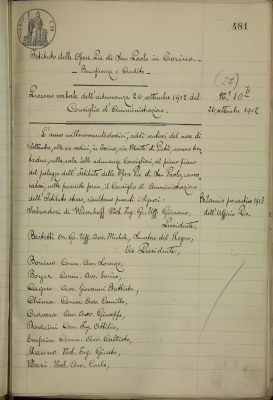 481
Istituto delle Opere Pie di San Paolo in Torino. -
Beneficenza e Credito. -
Processo verbale dell'adunanza 26 settembre 1912 del
Consiglio d'Amministrazione. -
(27)
N.° 10
26 settembre 1912
L'anno millenovecentododici, addì ventisei del mese di
settembre, alle ore sedici, in Torino, via Monte di Pietà, numero
nella sala delle adunanze Consigliari, al piano
del palazzo dell'Istituto delle Opere Pie di San Paolo,
nelle prescritte forme, il Consiglio di Amministrazione
dell'Istituto stesso, risultano presenti i Signori:
Bilancio preventivo 1913
dell'Ufficio Pio.
Salvadori di Wiesenhoff Nob. Ing. Gr. Uff. Giacomo,
Presidente,
Bertetti Gr. Uff. Avv. Michele, Senatore del Regno,
Vice Presidente,
Bonino Comm. Avv. Lorenzo,
Comm. Avv.
Avv. Giovanni Battista,
Comm. Avv. Camillo,
Cravera Cav. Avv. Giuseppe,
Cav. Ing. Attilio,
Comm. Avv.
Nob. Ing.
Nob. Avv. Carlo,